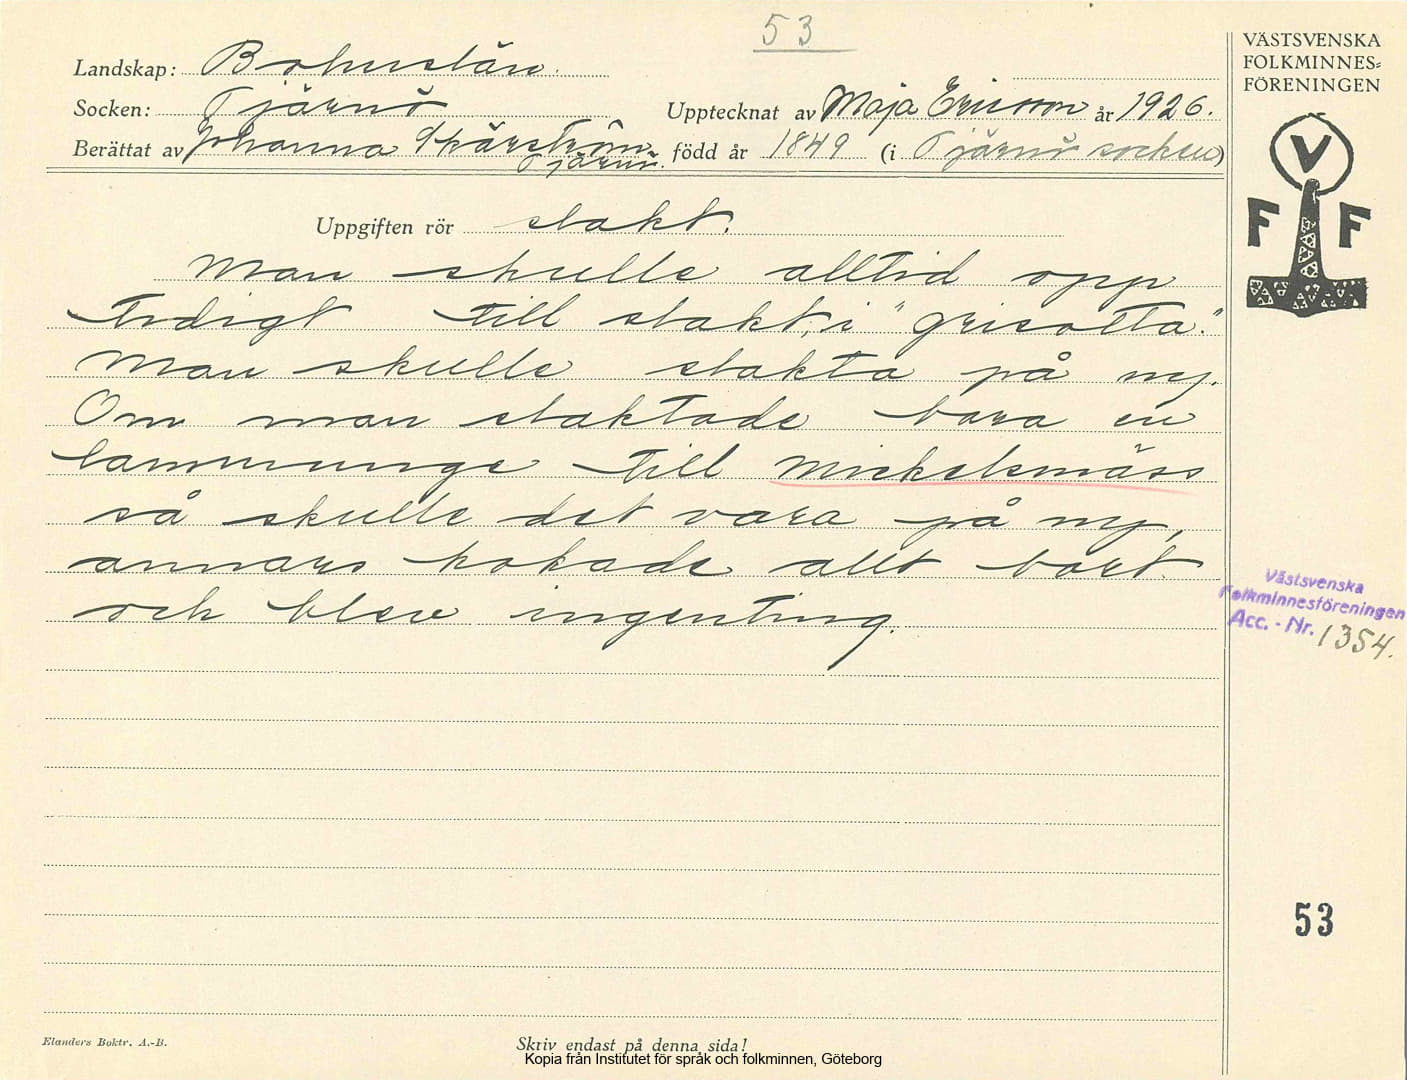 53
VÄSTSVENSKA
FOLKMINNES-
FÖRENINGEN
Landskap: Bohuslän
Socken: Tjärnö
Upptecknat av Maja Ericson år 1926.
Berättat av Johanna Skärström
Tjärnö.
född år 1849 (i Tjärnö socken)
V
F F
Uppgiften rör slakt.
Man skulle alltid opp
tidigt till slakt, i "grisotta."
Man skulle slakta på ny.
Om man slaktade bara en
lammunge till Mickelsmäss
så skulle det vara på ny,
annars kokade allt bort
och blev ingenting.
Västsvenska
Folkminnesföreningen
Acc. - Nr. 1354.
53
Elanders Boktr. A.-B.
Skriv endast på denna sida!
Kopia från Institutet för språk och folkminnen, Göteborg